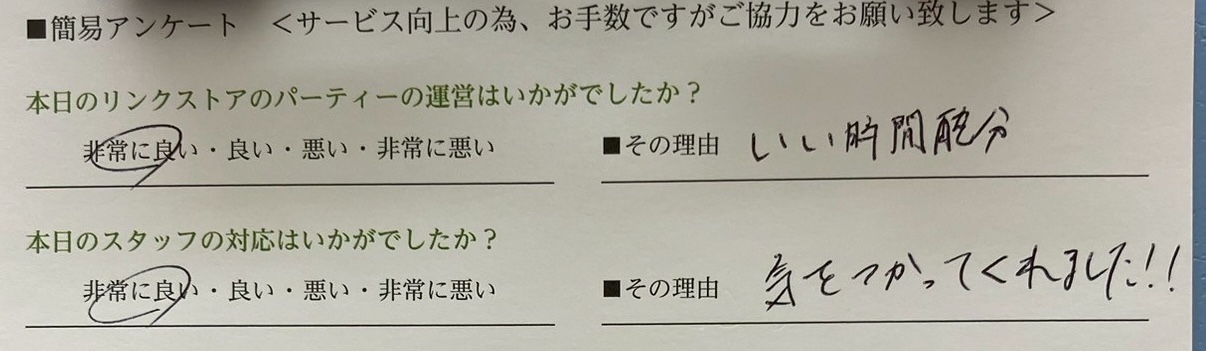 ■簡易アンケート ＜サービス向上の為、お手数ですがご協力をお願い致します＞
本日のリンクストアのパーティーの運営はいかがでしたか？
非常に良い・良い・悪い・非常に悪い ■その理由 いい時間配分
本日のスタッフの対応はいかがでしたか？
非常に良い・良い・悪い・非常に悪い ■その理由 気をつかってくれました!!